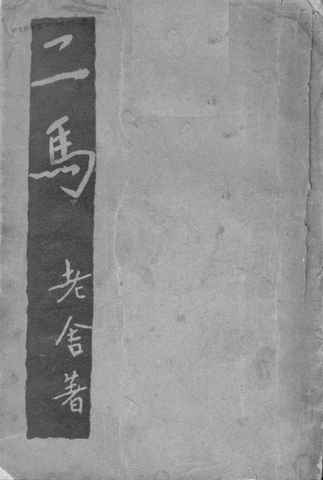 二馬
老舍著